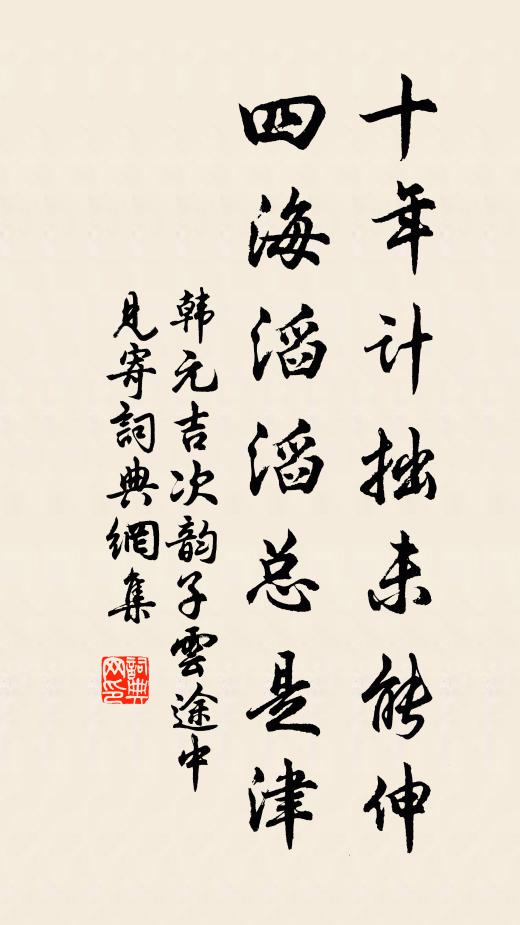 十年计拙未能伸
四海滔滔总是津
韩元吉次韵子雲途中
见寄詞典網集
詞典网印